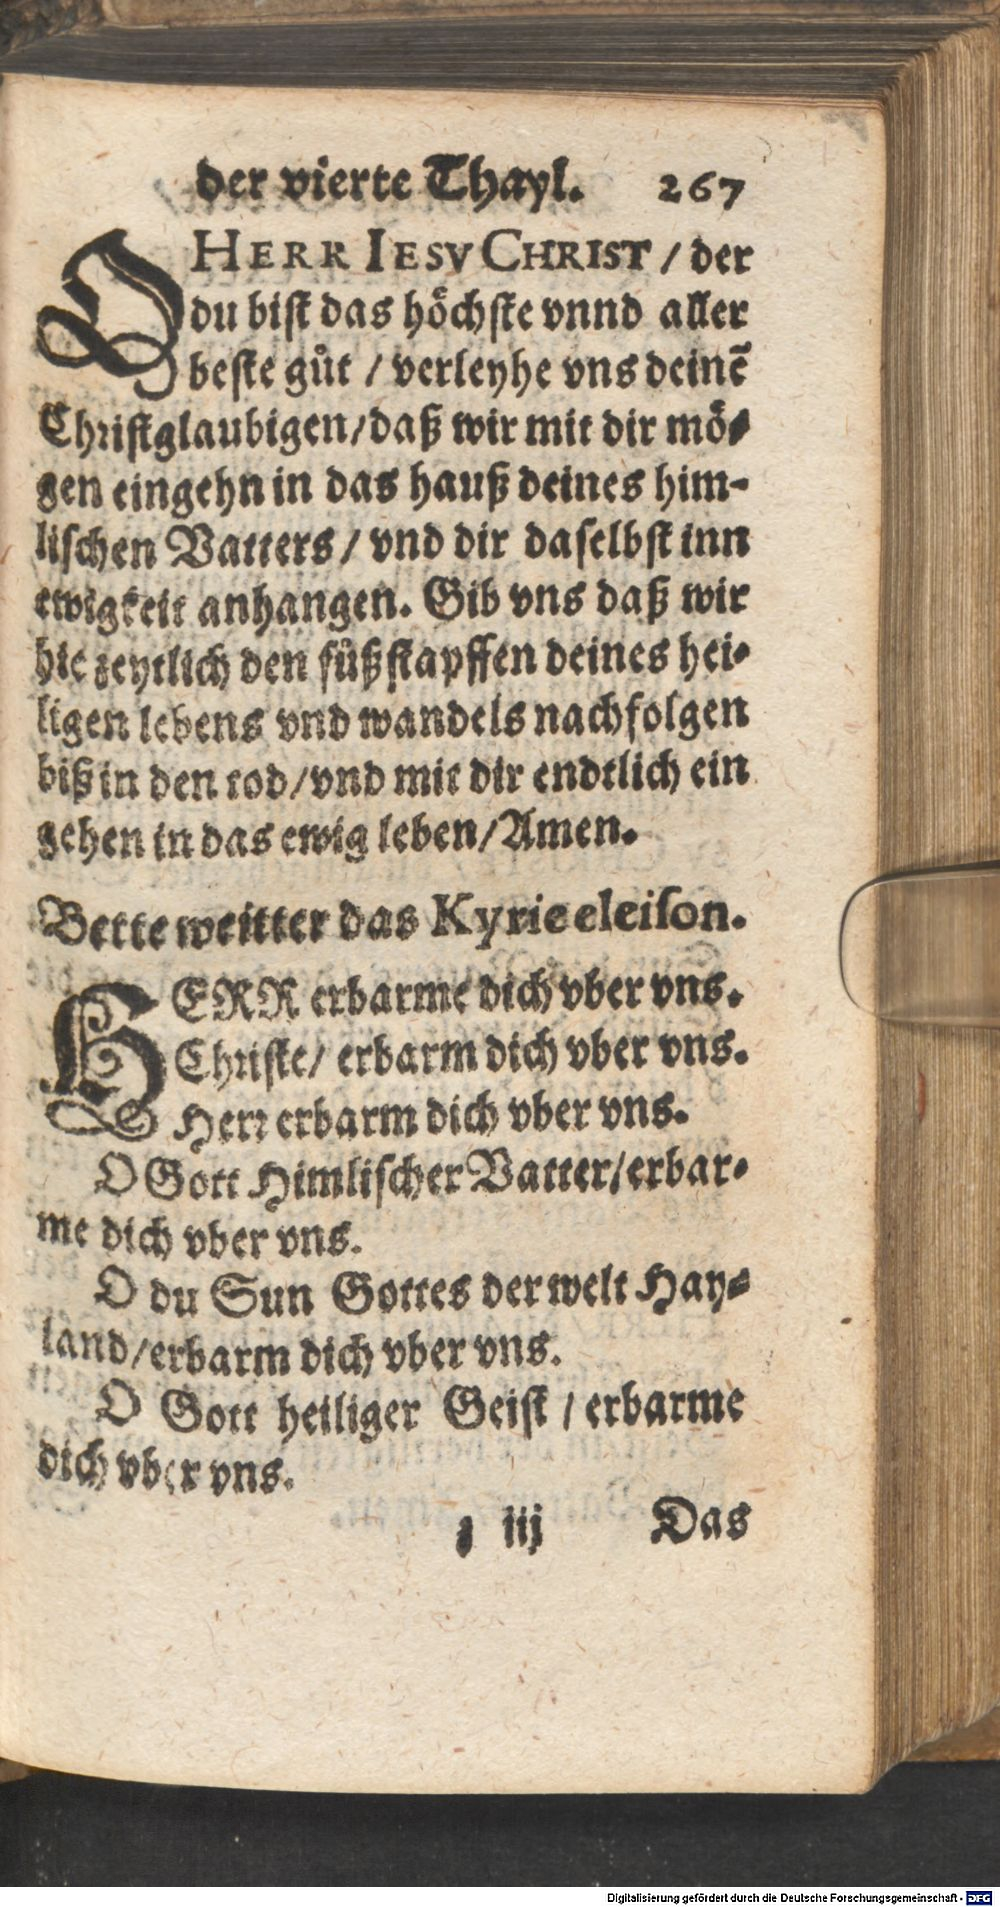 der vierte Thayl. 267
O HERR IESV CHRIST / der
du bist das höchste vnnd aller
beste gůt / verleyhe vns deinẽ
Christglaubigen/daß wir mit dir mö-
gen eingehn in das hauß deines him-
lischen Vatters/ vnd dir daselbst inn
ewigkeit anhangen. Gib vns daß wir
hie zeytlich den fůßstapffen deines hei-
ligen lebens vnd wandels nachfolgen
biß in den tod/vnd mit dir endtlich ein
gehen in das ewig leben/Amen.
Bette weitter das Kyrie eleison.
HERR erbarme dich vber vns.
Christe/ erbarm dich vber vns.
Herr erbarm dich vber vns.
O Gott Himlischer Vatter/erbar-
me dich vber vns.
O du Sun Gottes der welt Hay-
land/erbarm dich vber vns.
O Gott heiliger Geist / erbarme
dich vber vns.
iij Das
Digitalisierung gefördert durch die Deutsche Forschungsgemeinschaft - DFG